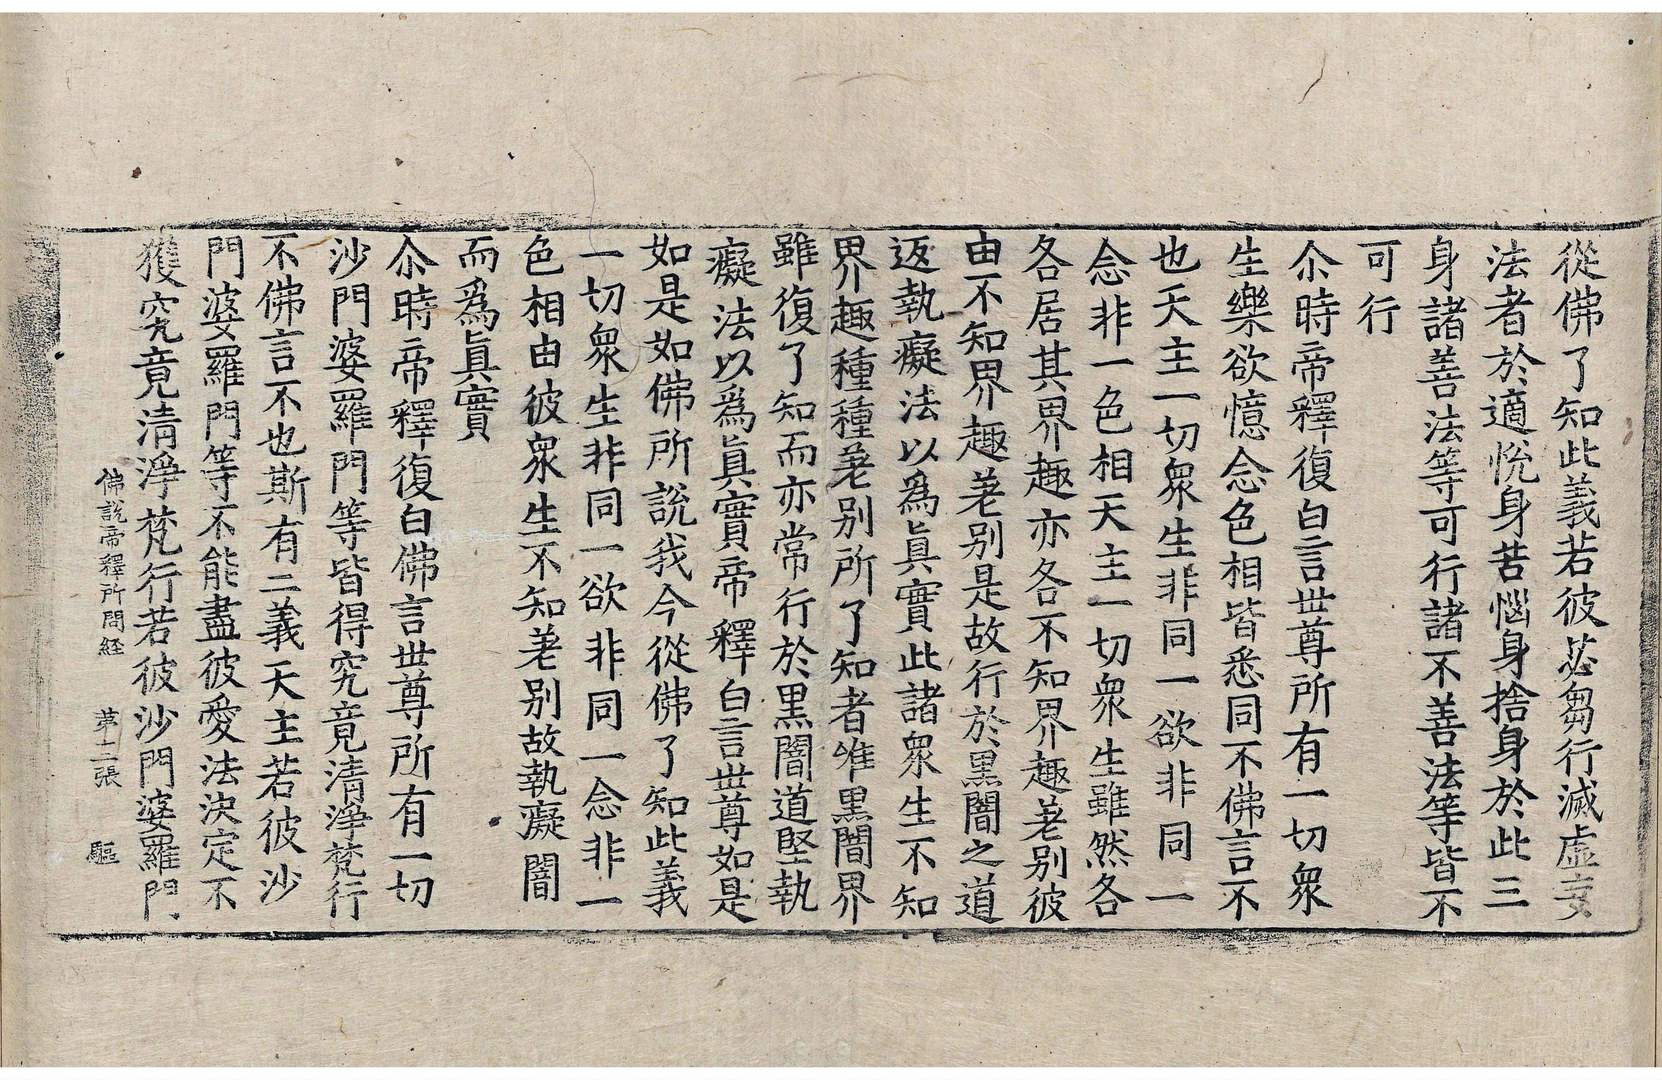 從佛了知此義若彼苾芻行滅虛妄
法者於適悅身苦惱身捨身於此三
身諸善法等可行諸不善法等皆不
可行
尒時帝釋復白言世尊所有一切衆
生樂欲憶念色相皆悉同不佛言不
也天主一切衆生非同一欲非同一
念非一色相天主一切衆生雖然各
各居其界趣亦各不知界趣差别彼
由不知界趣差别是故行於黑闇之道
返執癡法以爲眞實此諸衆生不知
界趣種種差别所了知者唯黑闇界
雖復了知而亦常行於黑闇道堅執
癡法以爲眞實帝釋白言世尊如是
如是如佛所說我今從佛了知此義
一切衆生非同一欲非同一念非一
色相由彼衆生不知差别故執癡闇
而爲眞實
尒時帝釋復白佛言世尊所有一切
沙門婆羅門等皆得究竟清淨梵行
不佛言不也斯有二義天主若彼沙
門婆羅門等不能盡彼愛法決定不
獲究竟清淨梵行若彼沙門婆羅門
佛說帝釋所問経　第十二張　驅